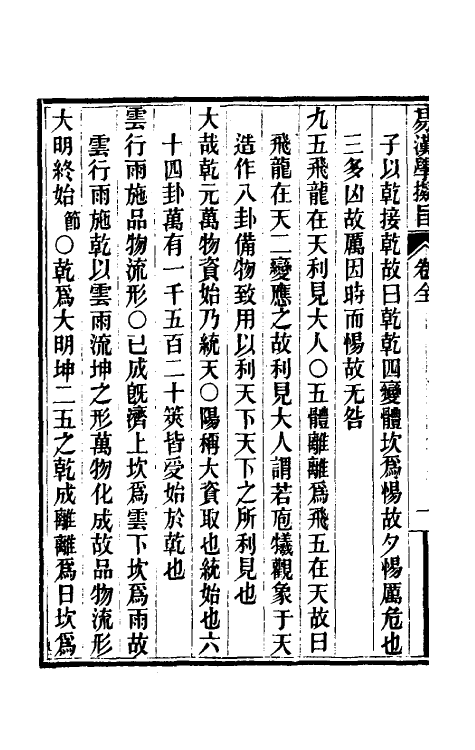 易漢學擬旨 卷全 一
子以乾接乾故曰乾乾四變體坎爲惕故夕惕厲危也
三多凶故厲因時而惕故无咎
九五飛龍在天利見大人○五體離離爲飛五在天故曰
飛龍在天二變應之故利見大人謂若庖犧觀象于天
造作八卦備物致用以利天下天下之所利見也
大哉乾元萬物資始乃統天○陽稱大資取也統始也六
十四卦萬有一千五百二十筴皆受始於乾也
雲行雨施品物流形○已成旣濟上坎爲雲下坎爲雨故
雲行雨施乾以雲雨流坤之形萬物化成故品物流形
大明終始節○乾爲大明坤二五之乾成離離爲日坎爲